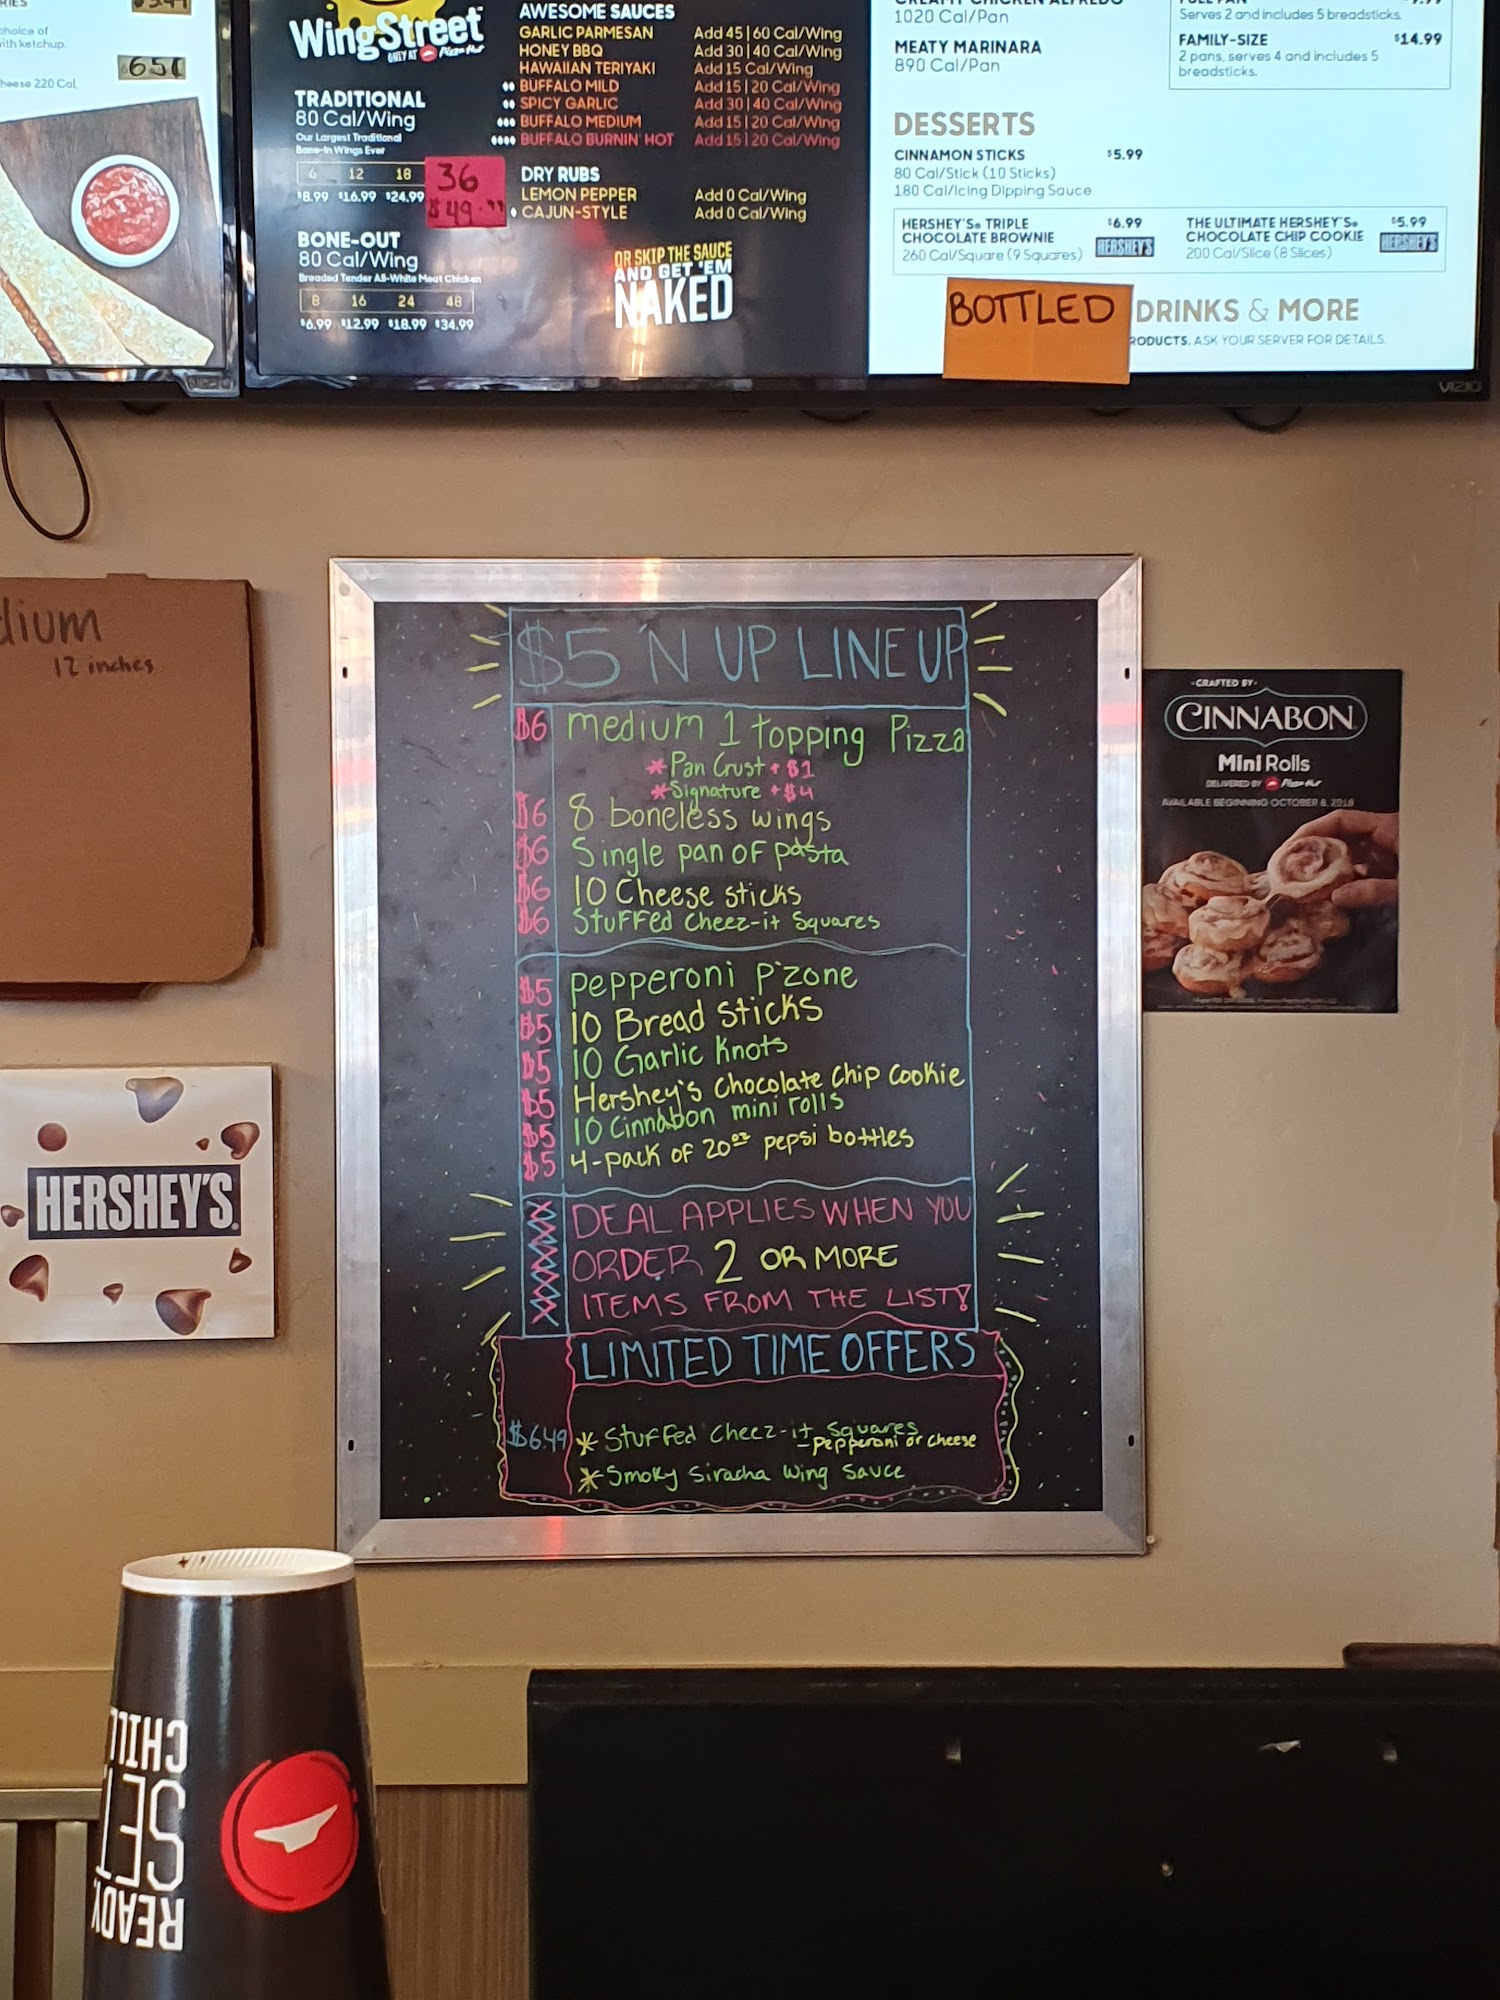 choice of
with ketchup.
6.5(
cheese 220 Cal,
WingStreet
ONLY AT Pizza Hut
TRADITIONAL
80 Cal/Wing
Our Largest Traditional
Bone-In Wings Ever
6 12 18
$8.99 $16.99 $24.99
36
$49.99
BONE-OUT
80 Cal/Wing
Breaded Tender All-White Meat Chicken
8 16 24 48
$6.99 $12.99 $18.99 $34.99
AWESOME SAUCES
GARLIC PARMESAN Add 45|60 Cal/Wing
HONEY BBQ Add 30|40 Cal/Wing
HAWAIIAN TERIYAKI Add 15 Cal/Wing
BUFFALO MILD Add 15|20 Cal/Wing
SPICY GARLIC Add 30|40 Cal/Wing
BUFFALO MEDIUM Add 15|20 Cal/Wing
BUFFALO BURNIN' HOT Add 15|20 Cal/Wing
DRY RUBS
LEMON PEPPER Add 0 Cal/Wing
CAJUN-STYLE Add 0 Cal/Wing
OR SKIP THE SAUCE
AND GET 'EM
NAKED
CREAMY CHICKEN ALFREDO
1020 Cal/Pan
MEATY MARINARA
890 Cal/Pan
Serves 2 and includes 5 breadsticks.
FAMILY-SIZE $14.99
2 pans, serves 4 and includes 5
breadsticks.
DESSERTS
CINNAMON STICKS $5.99
80 Cal/Stick (10 Sticks)
180 Cal/Icing Dipping Sauce
HERSHEY'S® TRIPLE $6.99
CHOCOLATE BROWNIE HERSHEY'S
260 Cal/Square (9 Squares)
THE ULTIMATE HERSHEY'S® $5.99
CHOCOLATE CHIP COOKIE HERSHEY'S
200 Cal/Slice (8 Slices)
BOTTLED DRINKS & MORE
RODUCTS. ASK YOUR SERVER FOR DETAILS.
VIZIO
dium
12 inches
$5 'N UP LINE UP
$6 medium 1 topping Pizza
*Pan Crust + $1
*Signature + $4
$6 8 boneless wings
$6 Single pan of pasta
$6 10 Cheese sticks
$6 Stuffed Cheez-it Squares
$5 Pepperoni P'zone
$5 10 Bread Sticks
$5 10 Garlic Knots
$5 Hershey's Chocolate Chip Cookie
$5 10 Cinnabon mini rolls
$5 4-pack of 20oz pepsi bottles
DEAL APPLIES WHEN YOU
ORDER 2 OR MORE
ITEMS FROM THE LIST!
LIMITED TIME OFFERS
$6.49 * Stuffed Cheez-it Squares
- Pepperoni or cheese
* Smoky Siracha Wing Sauce
CRAFTED BY
CINNABON
Mini Rolls
DELIVERED BY Pizza Hut
AVAILABLE BEGINNING OCTOBER 8, 2018
HERSHEY'S
READY.
SET.
CHILL